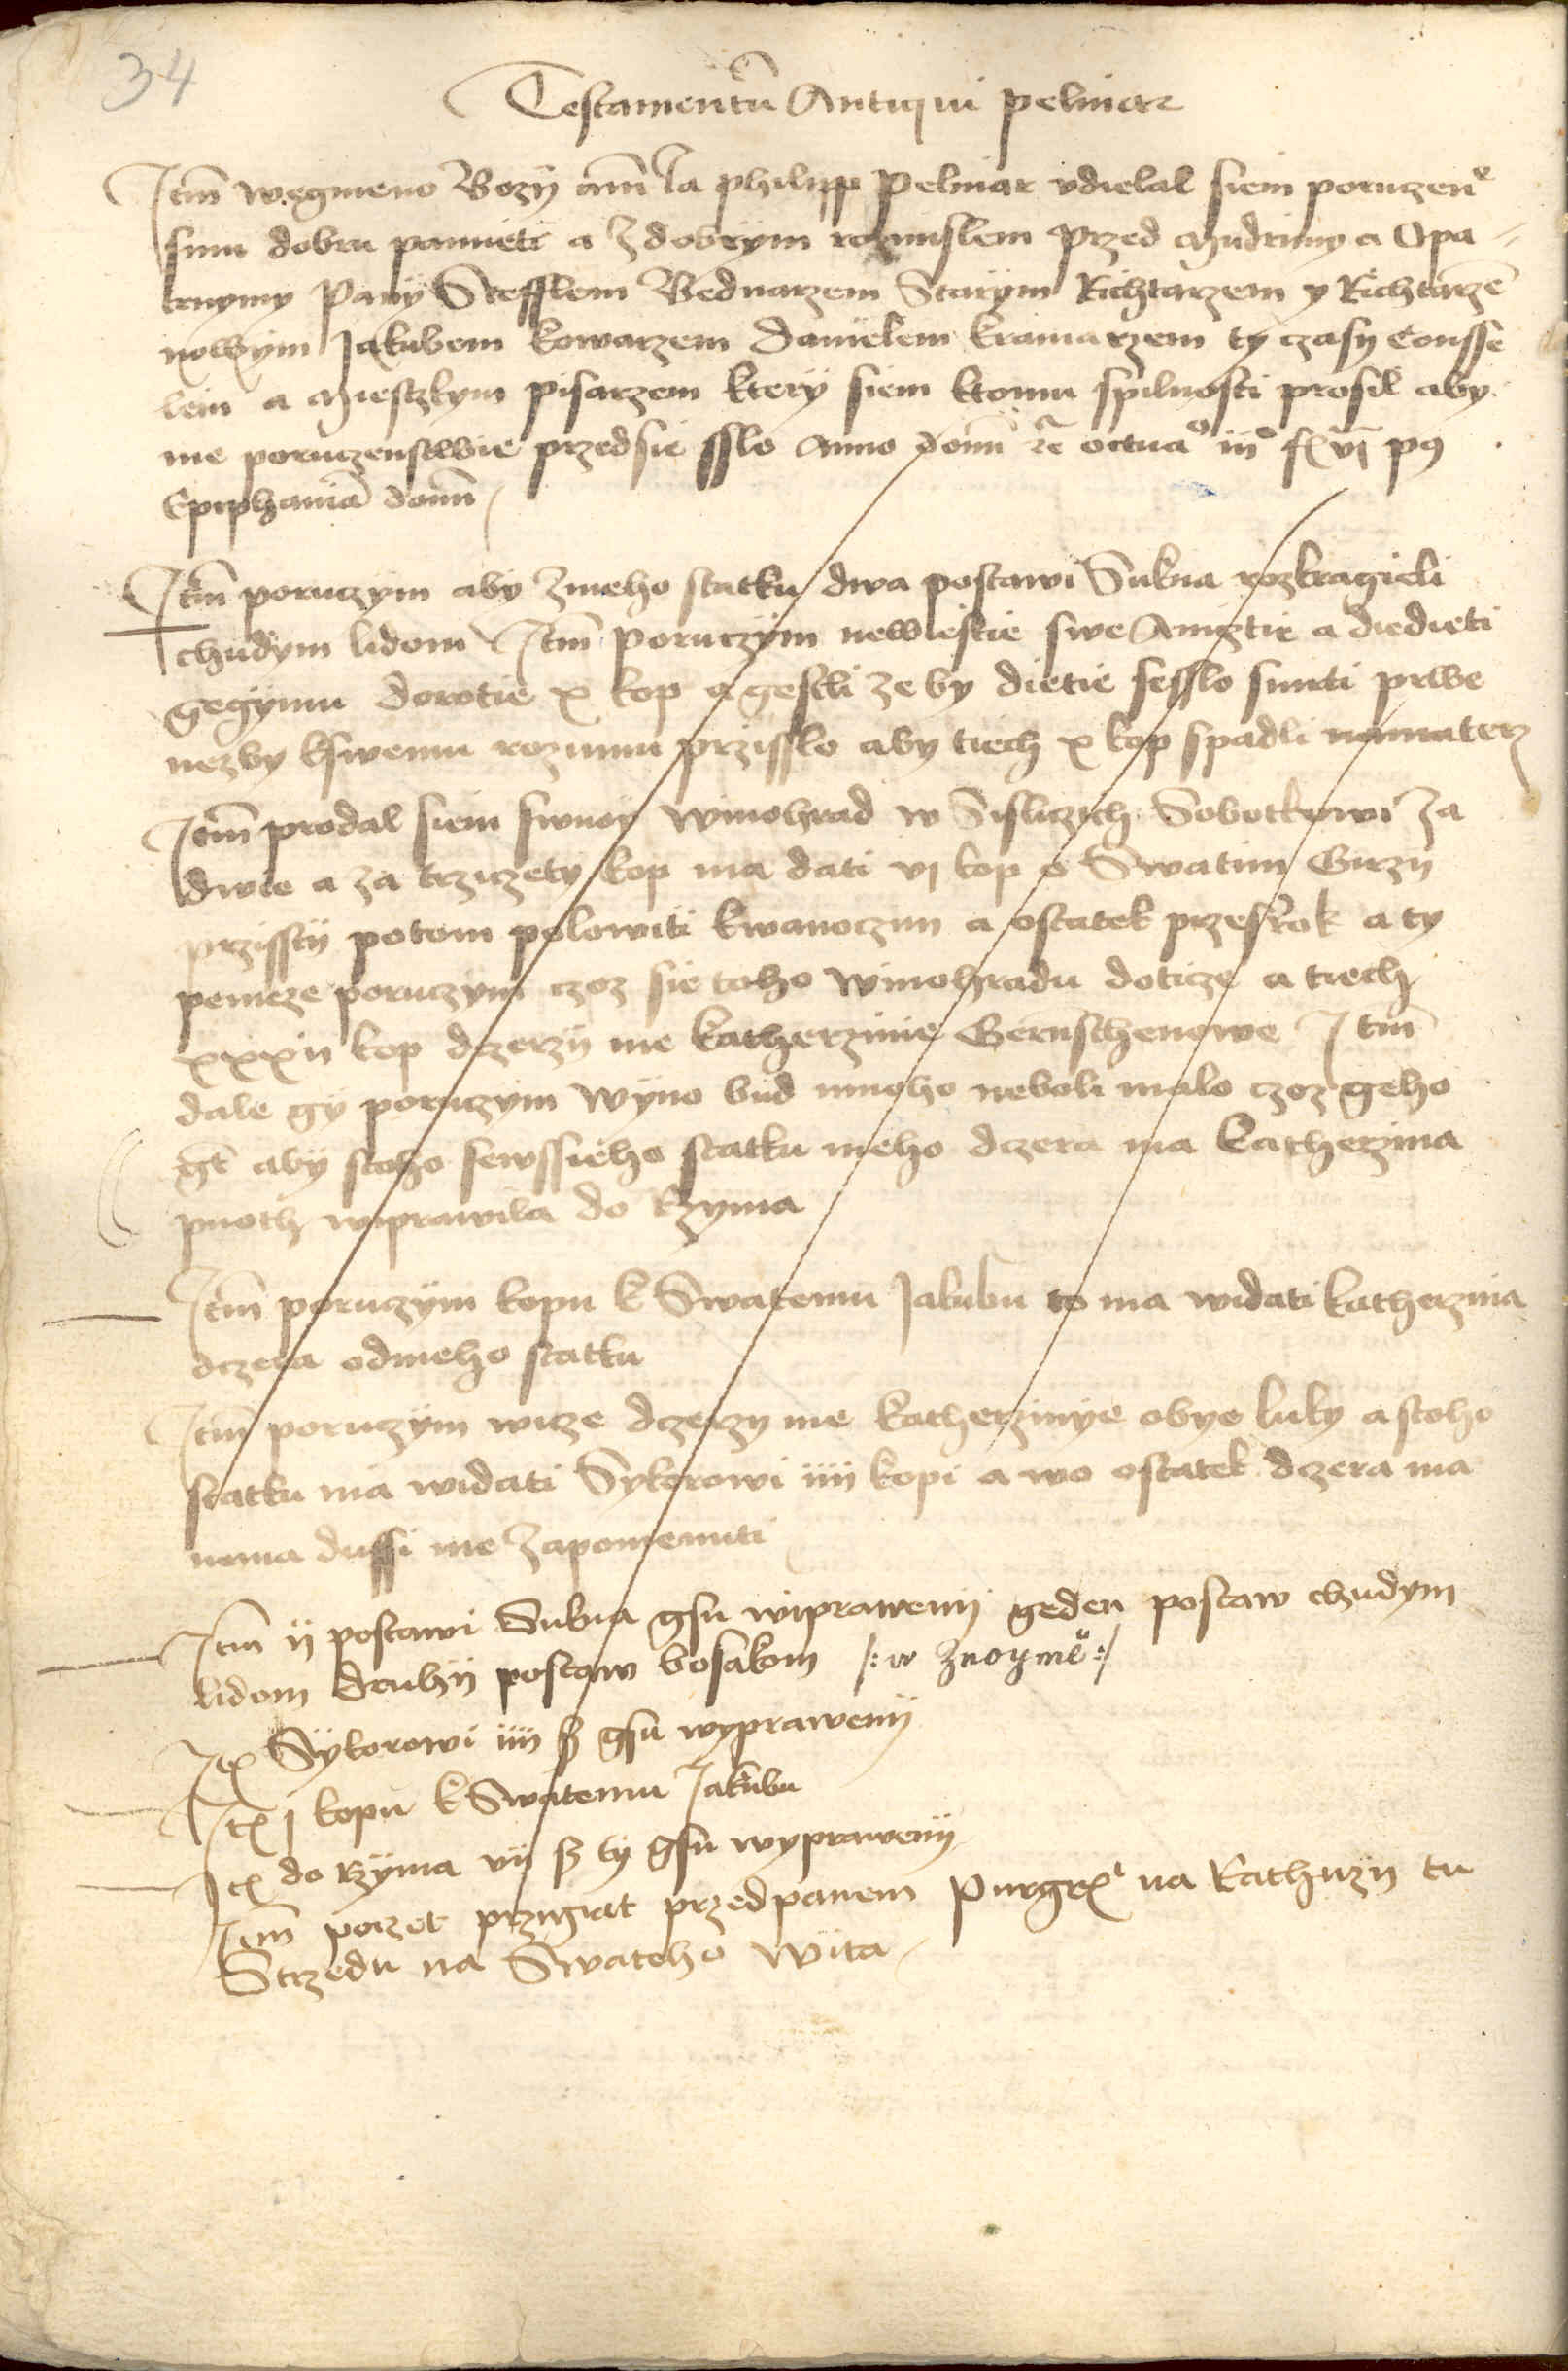 34
Testamentū Antiqui pelmar
Itm̄ wegmeno Bozij am̄ Ja philipp Pelmar vdielal siem poruczene
smu dobru pamieti a z dobrym rozmislem Przed mudrimy a Opa-
trnymy Pany Stefflem Bednarzem Starym Richtarzem y Richtarzē
nowym Jakubem kowarzem Danielem kramarzem ty czasy Consse
lem a miesczkym pisarzem ktery siem ktomu spilnosti prosil aby
me poruczenstwie przedsie sslo Anno domī rē octuao iiio fx vi pq
Epiphaniā domī
Itm̄ poruczym aby zmeho statku dwa postawi Sukna rozkragieli
chudym lidom Itm̄ Poruczym newiestie swe Anigtie a diedieti
gegymu dorotie x kop a gestli ze by dietie sesslo smrti prwe
nezby kswemu rozumu przisslo aby tiech x kop spadli namaterz
Itm̄ prodal siem swuoy winohrad w Sisliczich Sobotkowi za
dwie a za trziczety kop ma dati vi kop o Swatim Girzij
przisstij potom polowiti kwanoczum a ostatek przesrok a ty
penieze poruczym czoz sie toho winohradu doticze a tiech
xxxii kop dczerzij me katherzinie Bernschenowe Itm̄
dale gy poruczym wyno bud mnoho neboli malo czoz geho
gt̄ aby stoho sewssieho statku meho dczera ma Katherzina
puoth wiprawila do Rzyma
Itm̄ poruczym kopu k Swatemu Jakubu to ma widati katherzina
dczera odmeho statku
Itm̄ poruczym wicze dczerzy me katherzinye obye luky a stoho
statku ma widati Sykorowi iiii kopi a wo ostatek dczera ma
nema dussi me zapomenuti
Itm̄ ij postawi Sukna gsu wiprawenij geden postaw chudym
lidom druhij postaw bosakom /: w Znoyme :/
Itx Sykorowi iiii ß gsu wyprawenij
Itx j kopu k Swatemu Jakubu
Itx do Rzyma vij ß ty gsu wyprawenij
Itm̄ poczet przigiat przedpanem Purgrx na Rathuzij tu
Strzedu na Swateho Wita